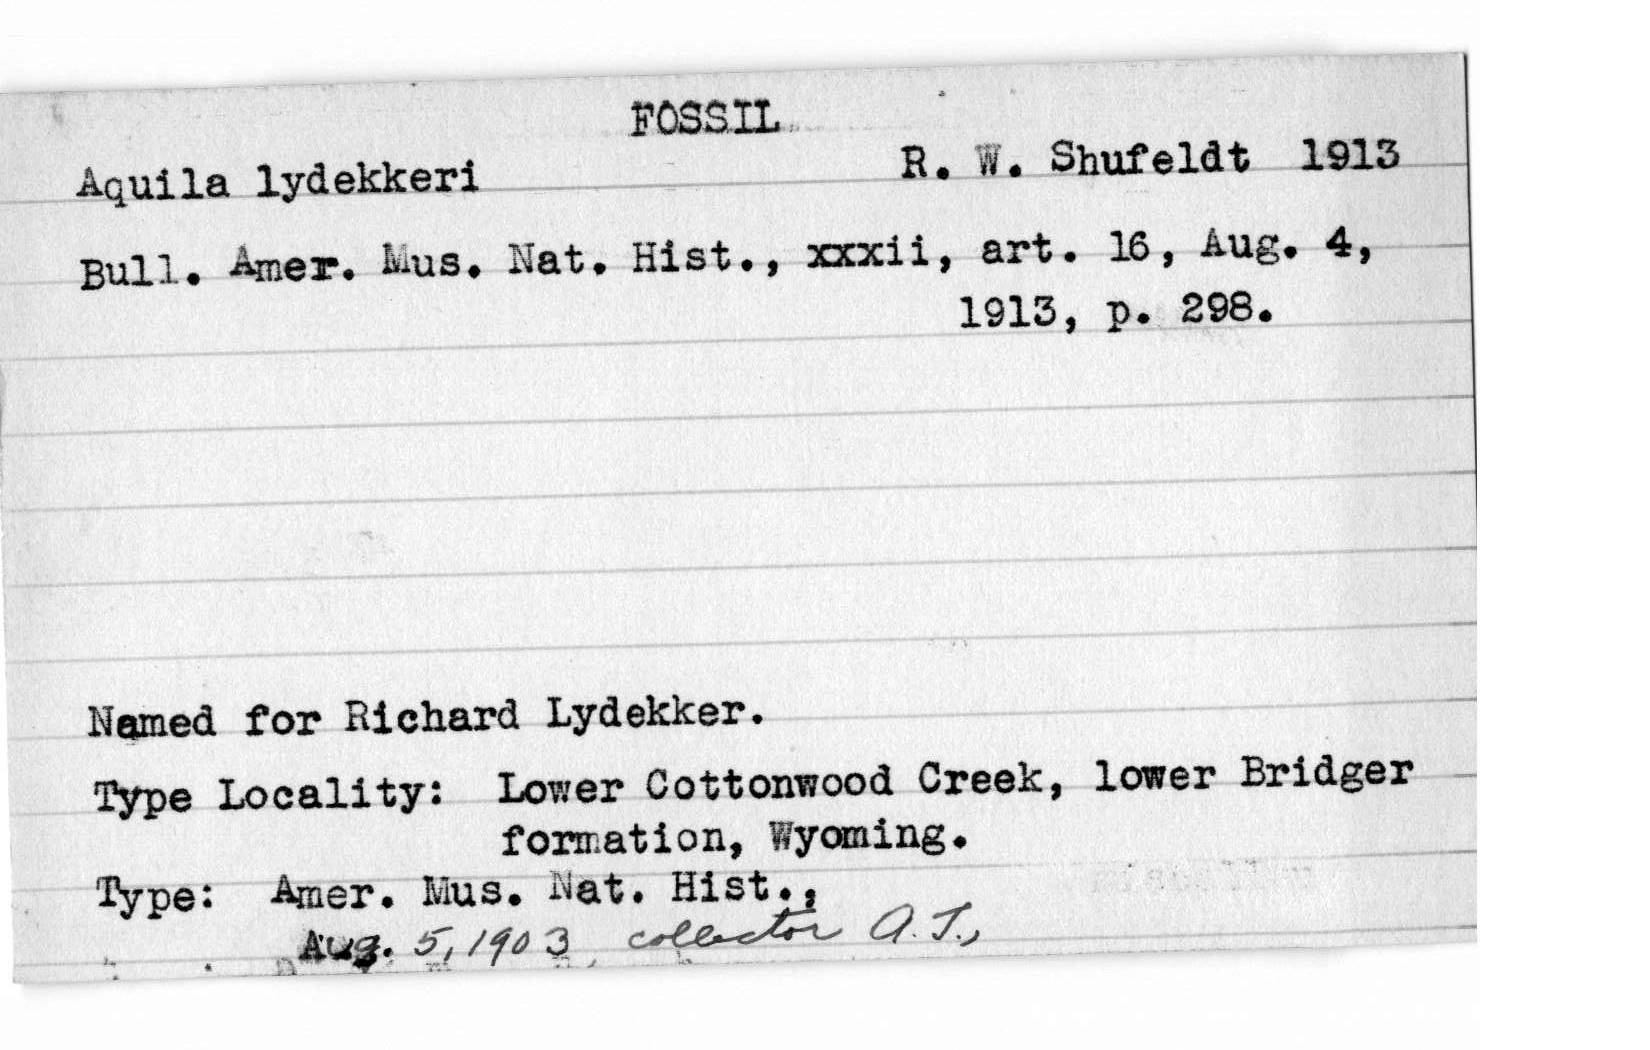 FOSSIL
Aquila lydekkeri R. W. Shufeldt 1913
Bull. Amer. Mus. Nat. Hist., xxxii, art. 16, Aug. 4,
1913, p. 298.
Named for Richard Lydekker.
Type Locality: Lower Cottonwood Creek, lower Bridger
formation, Wyoming.
Type: Amer. Mus. Nat. Hist.,
Aug. 5, 1903 collector A. T.,